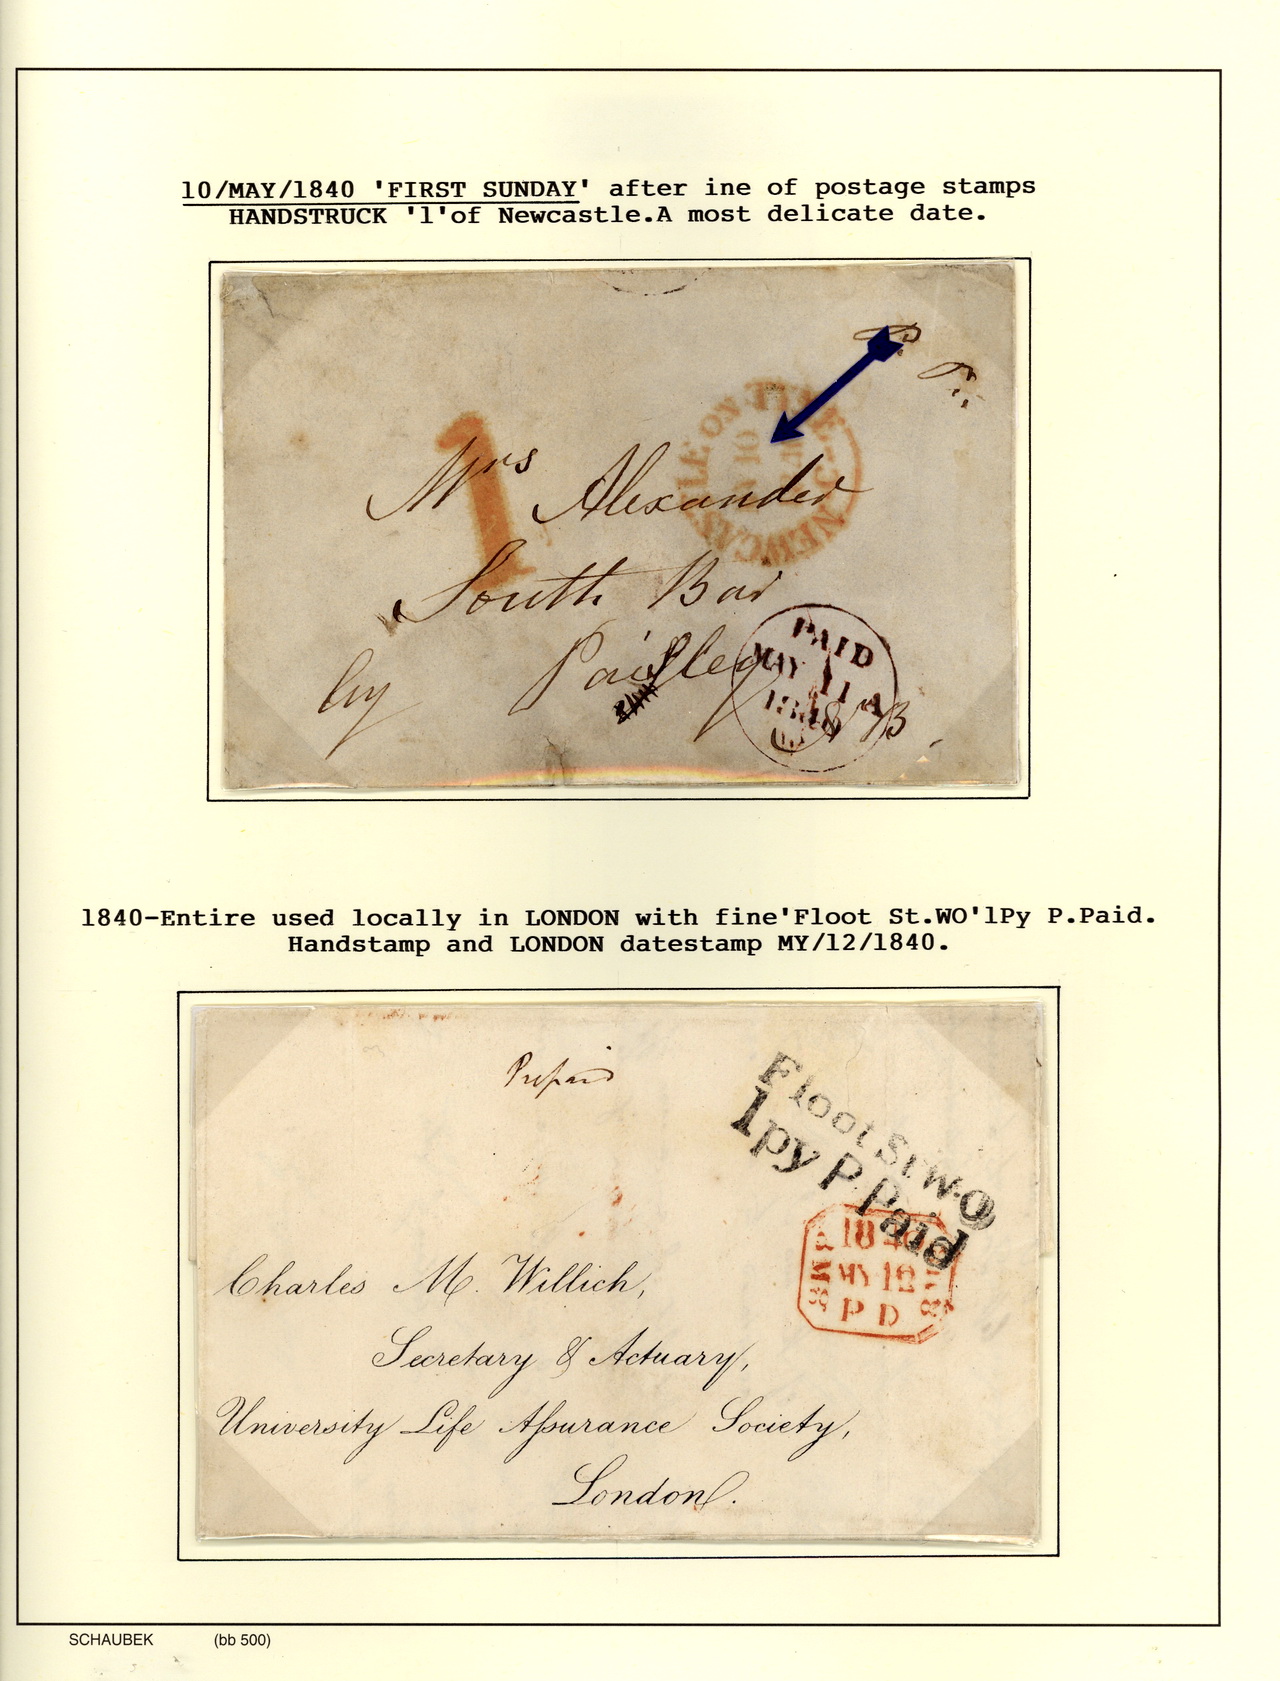 10/MAY/1840 'FIRST SUNDAY' after ine of postage stamps
HANDSTRUCK '1'of Newcastle.A most delicate date.
P.
P.
1
NEWCASTLE ON TYNE
10
Mrs Alexander
South Bar
Paisley
by
N B
PAID
MAY 11 A
1840
1840-Entire used locally in LONDON with fine'Floot St.WO'1Py P.Paid.
Handstamp and LONDON datestamp MY/12/1840.
Prepaid
Floot St W.O
1py P.Paid
1840
MY 12
P D
Charles M. Willich,
Secretary & Actuary,
University Life Aſsurance Society,
London.
SCHAUBEK (bb 500)